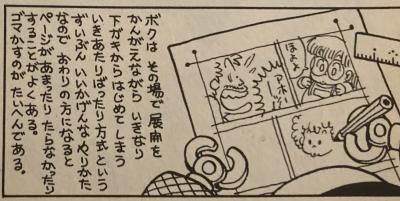 ボクは その場で 展開を
かんがえながら いきなり
下がきからはじめて しまう
いきあたりばったり方式という
ずいぶん いいかげんな やりかた
なので おわりの方になると
ページがあまったり たらなかったり
することが よくある。
ゴマかすのが たいへんである。
ほよよ
アホー